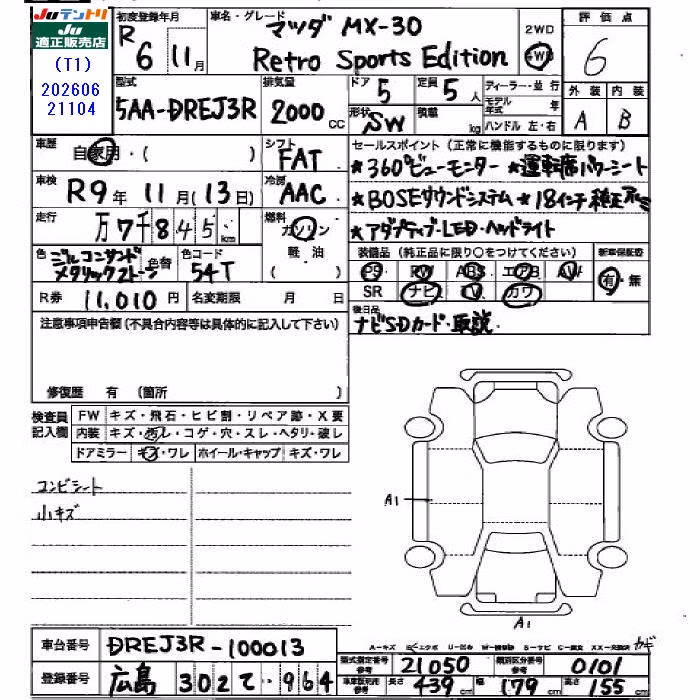 Juテントリ
Ju
適正販売店
(T1)
202606
21104
初度登録年月
R
6 11月
車名・グレード
マツダ MX-30
Retro Sports Edition
2WD
4WD
評価点
6
外装 内装
A B
型式
5AA-DREJ3R
排気量
2000 CC
ドア
5
定員
5人
形状
SW
積載 kg
ディーラー・並行
モデル年式 年
ハンドル 左・右
車歴
自家用・( )
シフト
FAT
車検
R9年 11月(13日)
冷房
AAC
走行
万7千845km
燃料
ガソリン
軽・油
( )
色
ジルコニサンド
メタリック2トーン
色替
色コード
54T
R券
11,010円
名変期限 月 日
セールスポイント (正常に機能するものに限ります)
★360°ビューモニター ★運転席パワーシート
★BOSEサウンドシステム ★18インチ純正アルミ
★アダプティブ・LED・ヘッドライト
装備品 (純正品に限り〇をつけてください)
新車保証書
PS PW ABS エアB AW
有・無
SR ナビ TV カワ
後日品
ナビSDカード・取説.
注意事項申告欄 (不具合内容等は具体的に記入して下さい)
修復歴 有 (箇所 )
検査員記入欄
FW キズ・飛石・ヒビ割・リペア跡・X要
内装 キズ・汚レ・コゲ・穴・スレ・ヘタリ・破レ
ドアミラー キズ・ワレ ホイール・キャップ キズ・ワレ
コンビシート
小キズ
A1
A1
A-キズ
車台番号
DREJ3R-100013
登録番号
広島 302 て 964
型式指定番号 参考
21050
類別区分番号 参考
0101
車庫販売時 参考
長さ 439 cm
幅 179 cm
高さ 155 cm